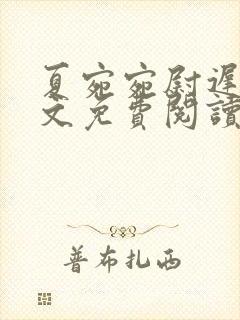 夏宛宛尉遲
文免費閱讀
普布扎西